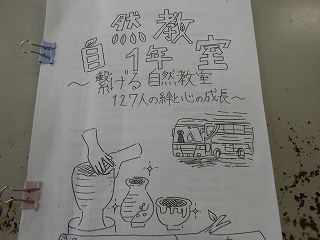 自然教室
1年
～繋げる自然教室
127人の絆と心の成長～